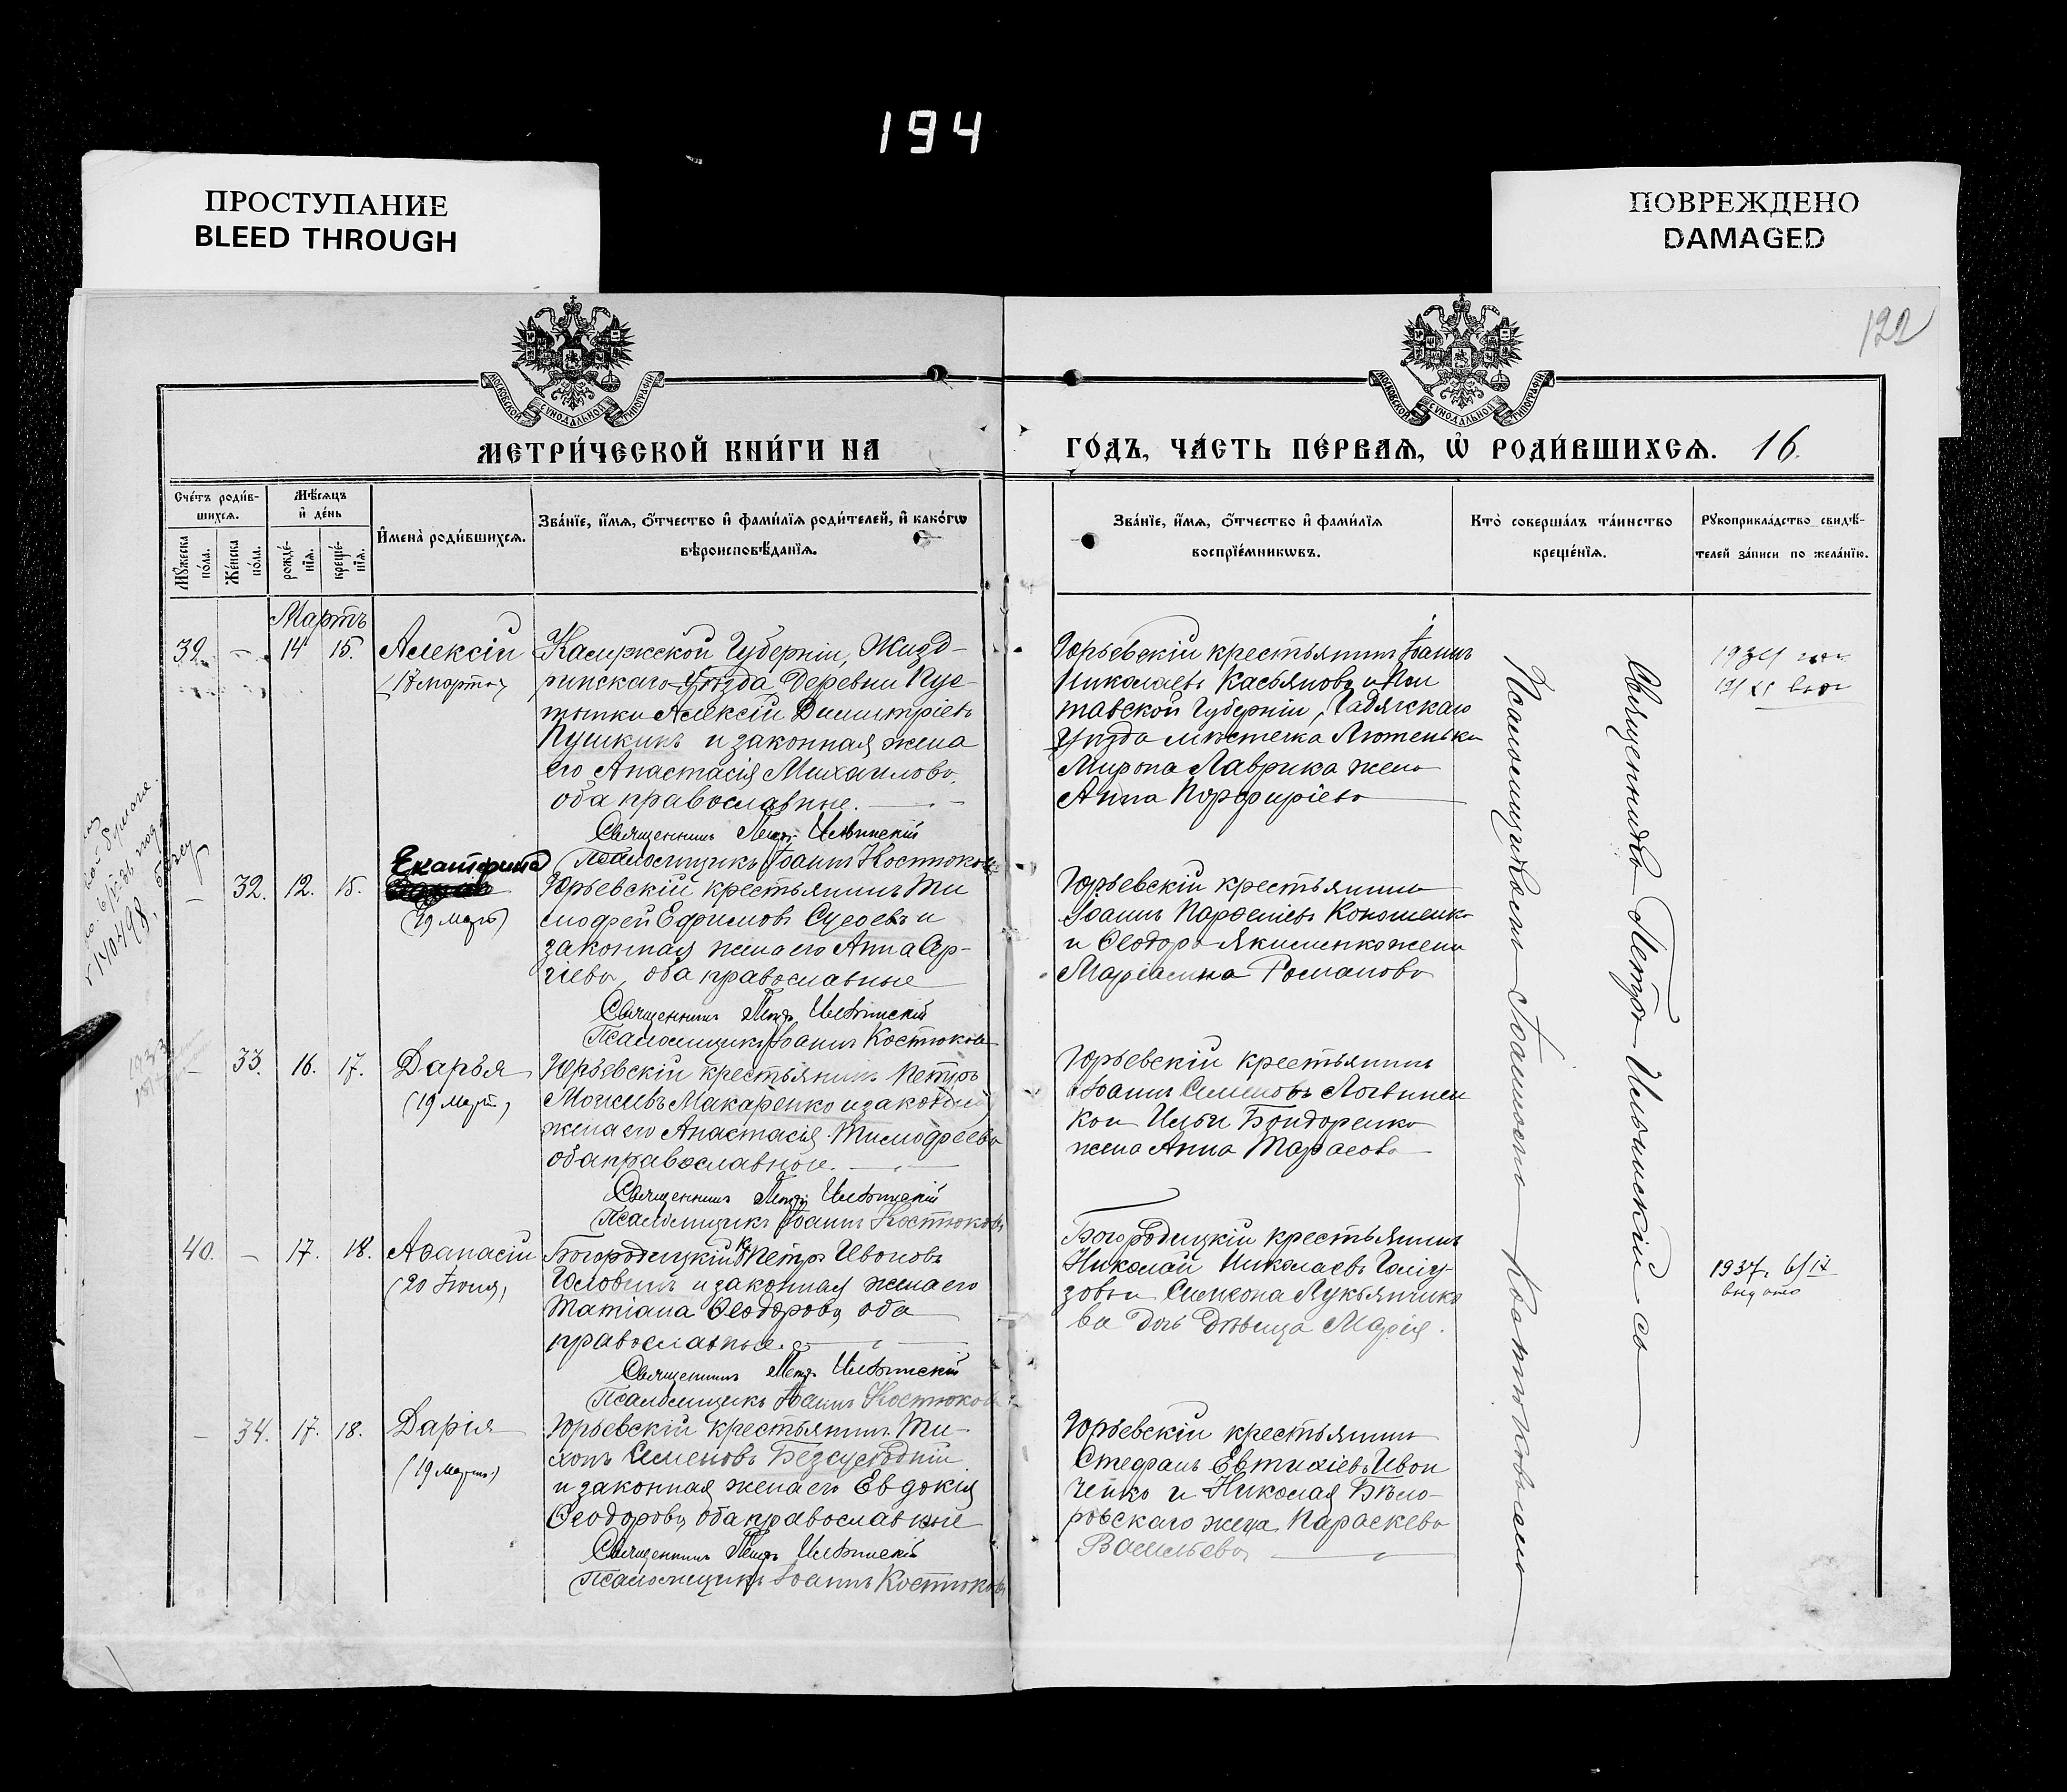 194
ПРОСТУПАНИЕ
BLEED THROUGH
ПОВРЕЖДЕНО
DAMAGED
122
МОСКОВСКОЙ СѴНОДАЛЬНОЙ ТИПОГРАФІИ
МОСКОВСКОЙ СѴНОДАЛЬНОЙ ТИПОГРАФІИ
МЕТРИ́ЧЕСКОЙ КНИ́ГИ НА
ГО́ДЪ, ЧА́СТЬ ПЕ́РВАѦ, Ѡ҆ РОДИ́ВШИХСѦ. 16.
Сче́тъ роди́в-
шихсѧ.
Мꙋ́жеска по́ла.
Же́нска по́ла.
Мѣ́сѧцъ
и҆ де́нь
рожде́-
нїѧ.
креще́-
нїѧ.
И҆мена̀ роди́вшихсѧ.
Зва́нїе, и҆́мѧ, ѻ҆́тчество и҆ фами́лїѧ роди́телей, и҆ како́гѡ
вѣроисповѣ́данїѧ.
Зва́нїе, и҆́мѧ, ѻ҆́тчество и҆ фами́лїѧ
воспрїе́мникѡвъ.
Кто̀ соверша́лъ та́инство
креще́нїѧ.
Рꙋкоприкла́дство свидѣ́-
телей за́писи по жела́нїю.
Мартъ
39. - 14 15. Алексій
(17 марта)
Калужской Губерніи, Жизд-
ринскаго Уѣзда Деревни Пус-
тынки Алексій Димитріевъ
Пушкинъ и законная жена
его Анастасія Михайлова,
оба православные.
Священникъ Петръ Ильинскій
Псаломщикъ Іоаннъ Костюковъ
Юрьевскій крестьянинъ Іоаннъ
Николаевъ Касьяновъ и Пол
тавской Губерніи, Гадячскаго
Уѣзда мѣстечка Лютеньки
Мирона Лаврика жена
Анна Порфиріева
- 32. 12. 15. Екатерина
(19 мар)
Юрьевскій крестьянинъ Ти
мофей Ефимовъ Сусоевъ и
законная жена его Анна Сер-
гіева, оба православные
Священникъ Петръ Ильинскій
Псаломщикъ Іоаннъ Костюковъ
Юрьевскій крестьянинъ
Іоаннъ Парфеніевъ Кононенко
и Ѳеодора Якименко жена
Маріамна Романова
- 33. 16. 17. Дарья
(19 март)
Юрьевскій крестьянинъ Петръ
Моисеевъ Макаренко и законная
жена его Анастасія Тимофеева
оба православные.
Священникъ Петръ Ильинскій
Псаломщикъ Іоаннъ Костюковъ
Юрьевскій крестьянинъ
Іоаннъ Семеновъ Логвинен
ко и Ильи Бондоренко
жена Анна Тарасова
40. - 17. 18. Аѳанасій
(20 Іюня)
Богородицкій кр Петръ Ивановъ
Головинъ и законная жена его
Татіана Ѳеодорова, оба
православные.
Священникъ Петръ Ильинскій
Псаломщикъ Іоаннъ Костюковъ
Богородицкій крестьянинъ
Николай Николаевъ
Симеона Лукьянчико
ва дочь дѣвица Марія.
1937. 6/IX
выдано
- 34. 17. 18. Дарія
(19 март)
Юрьевскій крестьянинъ Ти-
хонъ Семеновъ
и законная жена его Евдокія
Ѳеодорова, оба православные
Священникъ Петръ Ильинскій
Псаломщикъ Іоаннъ Костюковъ
Юрьевскій крестьянинъ
Стефанъ Евтихіевъ Иван
ченко и Николая Бѣло-
ровскаго жена Параскева
Васильева
Священникъ Петръ Ильинскій съ
Псаломщикомъ Іоанномъ Костюковымъ